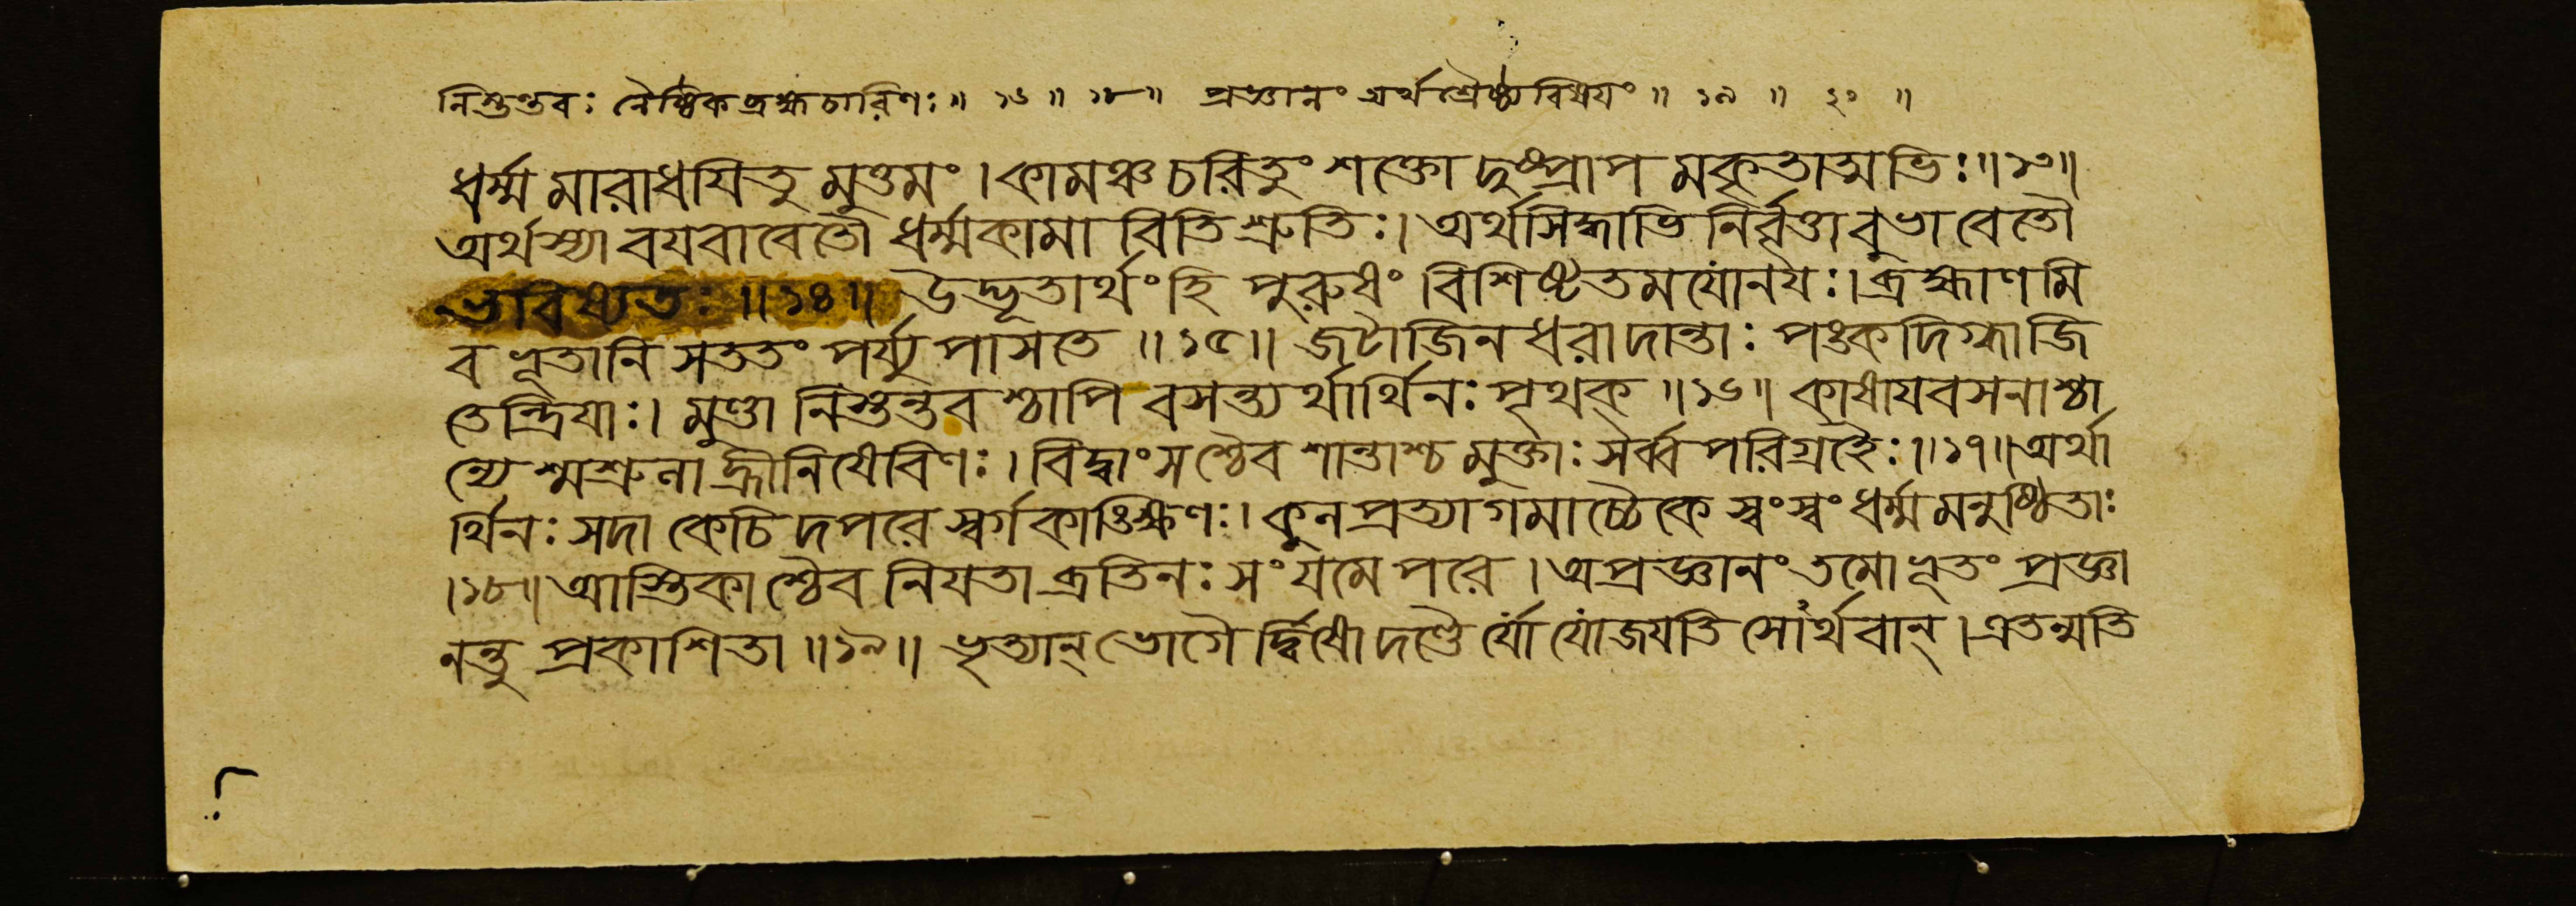 নিস্তন্তবঃ নৈষ্ঠিকব্রহ্মচারিণঃ॥ ১৬॥ ১৮॥ প্রজ্ঞানং অর্থশ্রৈষ্ঠ্যবিষয়ং॥ ১৯॥ ২০॥
ধর্ম্মমারাধযিতুমুত্তমং।কামঞ্চচরিতুংশক্তোদুষ্প্রাপমকৃতাত্মভিঃ॥১৩॥
অর্থস্যাবযবাবেতৌধর্ম্মকামাবিতিশ্রুতিঃ।অর্থসিদ্ধ্যাভিনির্বৃত্তাবুভাবেতৌ
ভবিষ্যতঃ॥১৪॥উদ্ভূতার্থংহিপুরুষংবিশিষ্টতমযোনযঃ।ব্রহ্মাণমি
বভূতানিসততংপর্য্যুপাসতে॥১৫॥জটাজিনধরাদান্তাঃপঙ্কদিগ্ধাজি
তেন্দ্রিযাঃ।মুণ্ডানিস্তন্তবশ্চাপিবসন্ত্যর্থার্থিনঃপৃথক্॥১৬॥কাষাযবসনাশ্চা
ন্যেশ্মশ্রুলাহ্রীনিষেবিণঃ।বিদ্বাংসশ্চৈবশান্তাশ্চমুক্তাঃসর্ব্বপরিগ্রহৈঃ॥১৭॥অর্থা
র্থিনঃসদাকেচিদপরেস্বর্গকাঙ্ক্ষিণঃ।কুলপ্রত্যাগমাশ্চৈকেস্বংস্বংধর্ম্মমনুষ্ঠিতাঃ
।১৮॥আস্তিকাশ্চৈবনিযতাব্রতিনঃসংযমেপরে।অপ্রজ্ঞানংতমোভূতংপ্রজ্ঞা
নন্তুপ্রকাশিতা॥১৯॥ভৃত্যান্ভোগৈর্দ্বিষোদণ্ডৈর্যোযোজযতিসোর্থবান্।এতন্মতি